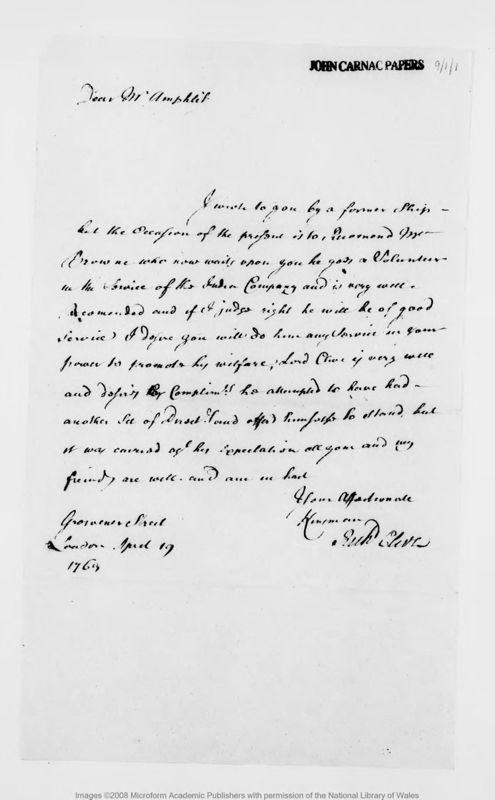 JOHN CARNAC PAPERS 9/1/1
Dear Mr. Amphlet
I wrote to you by a former Ship
but the Occasion of the present is to Recomend Mr
Browne who now waits upon you he goes a Volunteer
in the Service of the India Company and is very well
Recomended and if I judge right he will be of good
Service I desire you will do him any Service in your
power to promote his welfare, Lord Clive is very well
and desires Complimts. he attempted to have had
another Set of Directrs. and offerd himselfe to stand, but
it was carried agt. his Expectation all your and my
freinds are well. and am in hast
Your Affectionate
Kinsman
Richd. Clive
Grosvenor Street
London Aprl 19
1764
Images ©2008 Microform Academic Publishers with permission of the National Library of Wales